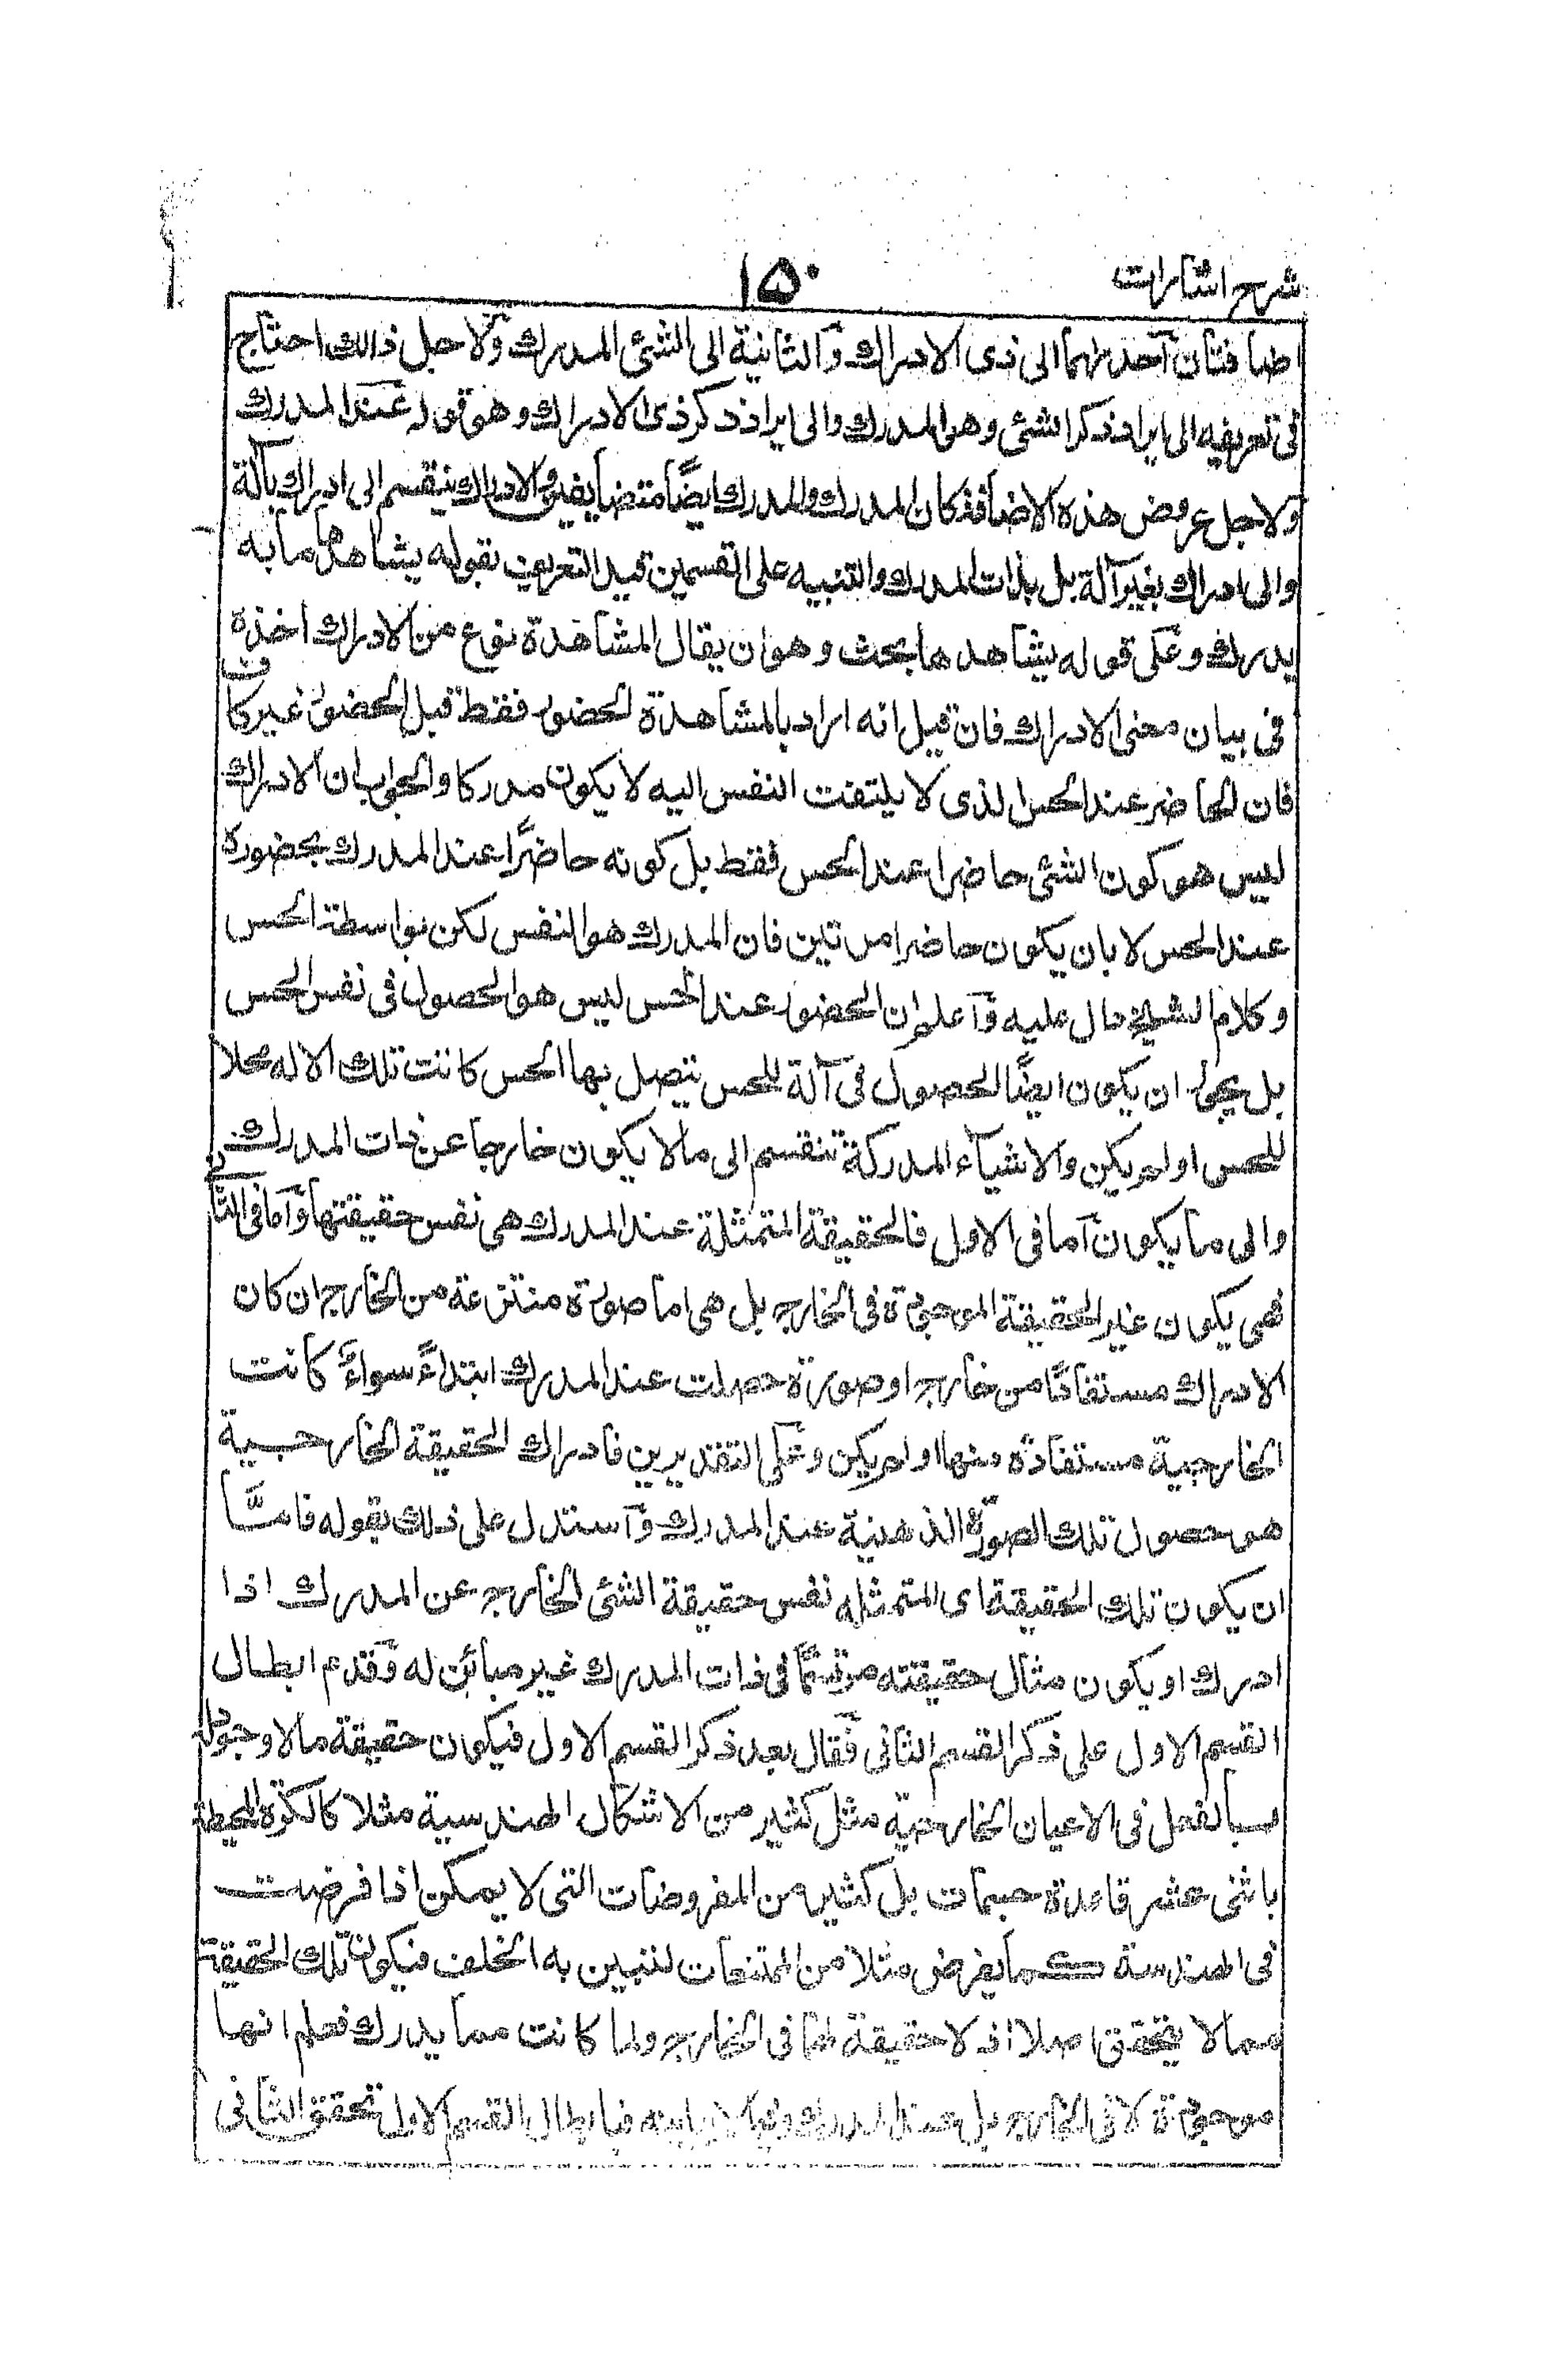 شرح اشارات
١٥٠
اضافتان احدىهما الى ذى الادراك والثانية الى الشئ المدرك ولاجل ذالك احتاج
فى تعريفه الى ايراد ذكر الشئ وهو المدرك والى ايراد ذكر ذى الادراك وهو قوله عند المدرك
ولاجل عروض هذه الاضافة كان المدرك والمدرك ايضًا متضايفين والادراك ينقسم الى ادراك بآلة
والى ادراك بغير آلة بل بذات المدرك والتنبيه على القسمين قيد التعريف بقوله يشاهدها ما به
يدرك وعلى قوله يشاهدها بحث وهو ان يقال المشاهدة نوع من الادراك اخذه
فى بيان معنى الادراك فان قيل انه اراد بالمشاهدة الحضور فقط قيل الحضور غير كاف
فان الحاضر عند الحس الذى لا يلتفت النفس اليه لا يكون مدركا والجواب ان الادراك
ليس هو كون الشئ حاضرا عند الحس فقط بل كونه حاضرًا عند المدرك بحضوره
عند الحس لا بان يكون حاضرا مرتين فان المدرك هو النفس لكن بواسطة الحس
وكلام الشيخ دال عليه واعلم ان الحضور عند الحس ليس هو الحصول فى نفس الحس
بل يجوز ان يكون ايضًا الحصول فى آلة للحس يتصل بها الحس كانت تلك الاله محلا
للحس او لم يكن والاشياء المدركة تنقسم الى ما لا يكون خارجا عن ذات المدرك
والى ما يكون اما فى الاول فالحقيقة المتمثلة عند المدرك هى نفس حقيقتها واما فى الثانى
فهى يكون غير الحقيقة الموجودة فى الخارج بل هى اما صورة منتزعة من الخارج ان كان
الادراك مستفادًا من خارج او صورة حصلت عند المدرك ابتداءً سواءً كانت
الخارجية مستفادة منها او لم يكن وعلى التقديرين فادراك الحقيقة الخارجية
هو حصول تلك الصورة الذهنية عند المدرك واستدل على ذلك بقوله فاما
ان يكون تلك الحقيقة اى المتمثله نفس حقيقة الشئ الخارج عن المدرك اذا
ادرك او يكون مثال حقيقته مرتسمًا فى ذات المدرك غير مبائن له وقدم ابطال
القسم الاول على ذكر القسم الثانى فقال بعد ذكر القسم الاول فيكون حقيقة ما لا وجود له
بالفعل فى الاعيان الخارجية مثل كثير من الاشكال الهندسية مثلا كالكرة المحيطة
باثنى عشر قاعدة مخمسات بل كثير من المفروضات التى لا يمكن اذا فرضت
فى الهندسة كما يفرض مثلا من الممتنعات لنتبين به الخلف فيكون تلك الحقيقة
مما لا يتحقق اصلا اذ لا حقيقة لها فى الخارج ولما كانت مما يدرك فعلم انها
موجودة لا فى الخارج بل عند المدرك فبابطال القسم الاول تحقق الثانى